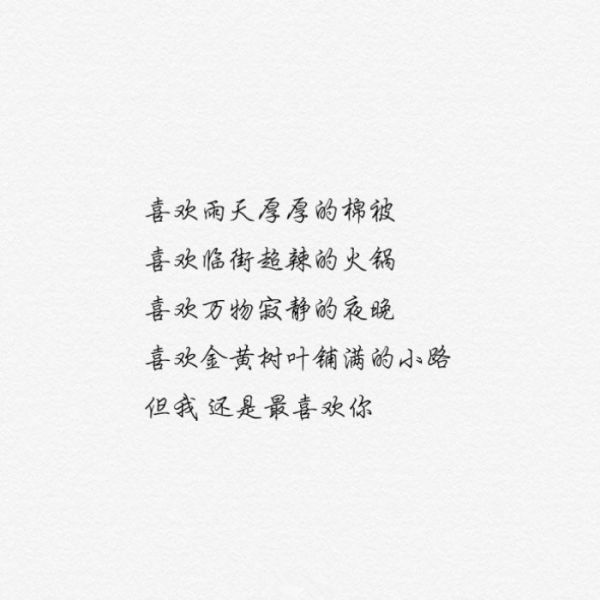 喜欢雨天厚厚的棉被
喜欢临街超辣的火锅
喜欢万物寂静的夜晚
喜欢金黄树叶铺满的小路
但我 还是最喜欢你